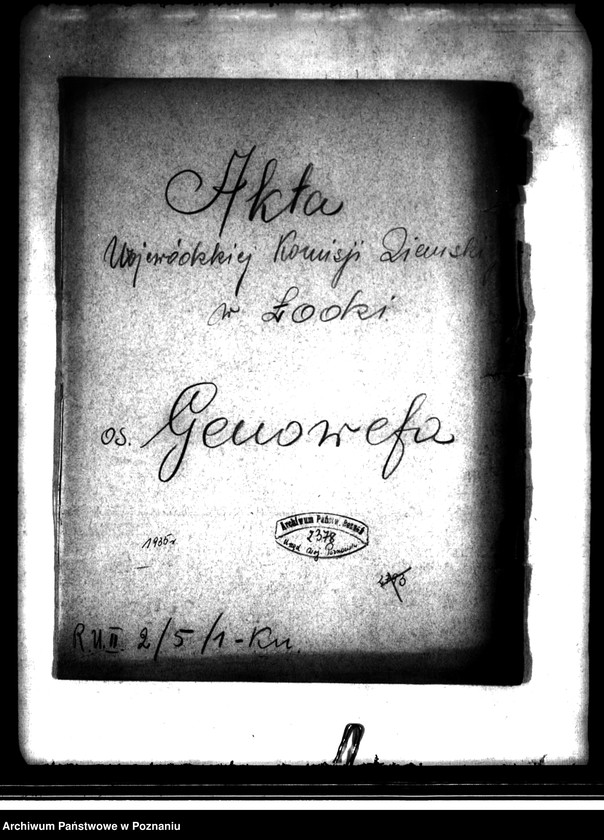 Akta
Wojewódzkiej Komisji Ziemski
w Łodzi
os. Genowefa
1935 r
Archiwum Państw. Poznań
2378
Urząd Woj. Poznański
R.U.II. 2/5/1-Kn.
Archiwum Państwowe w Poznaniu